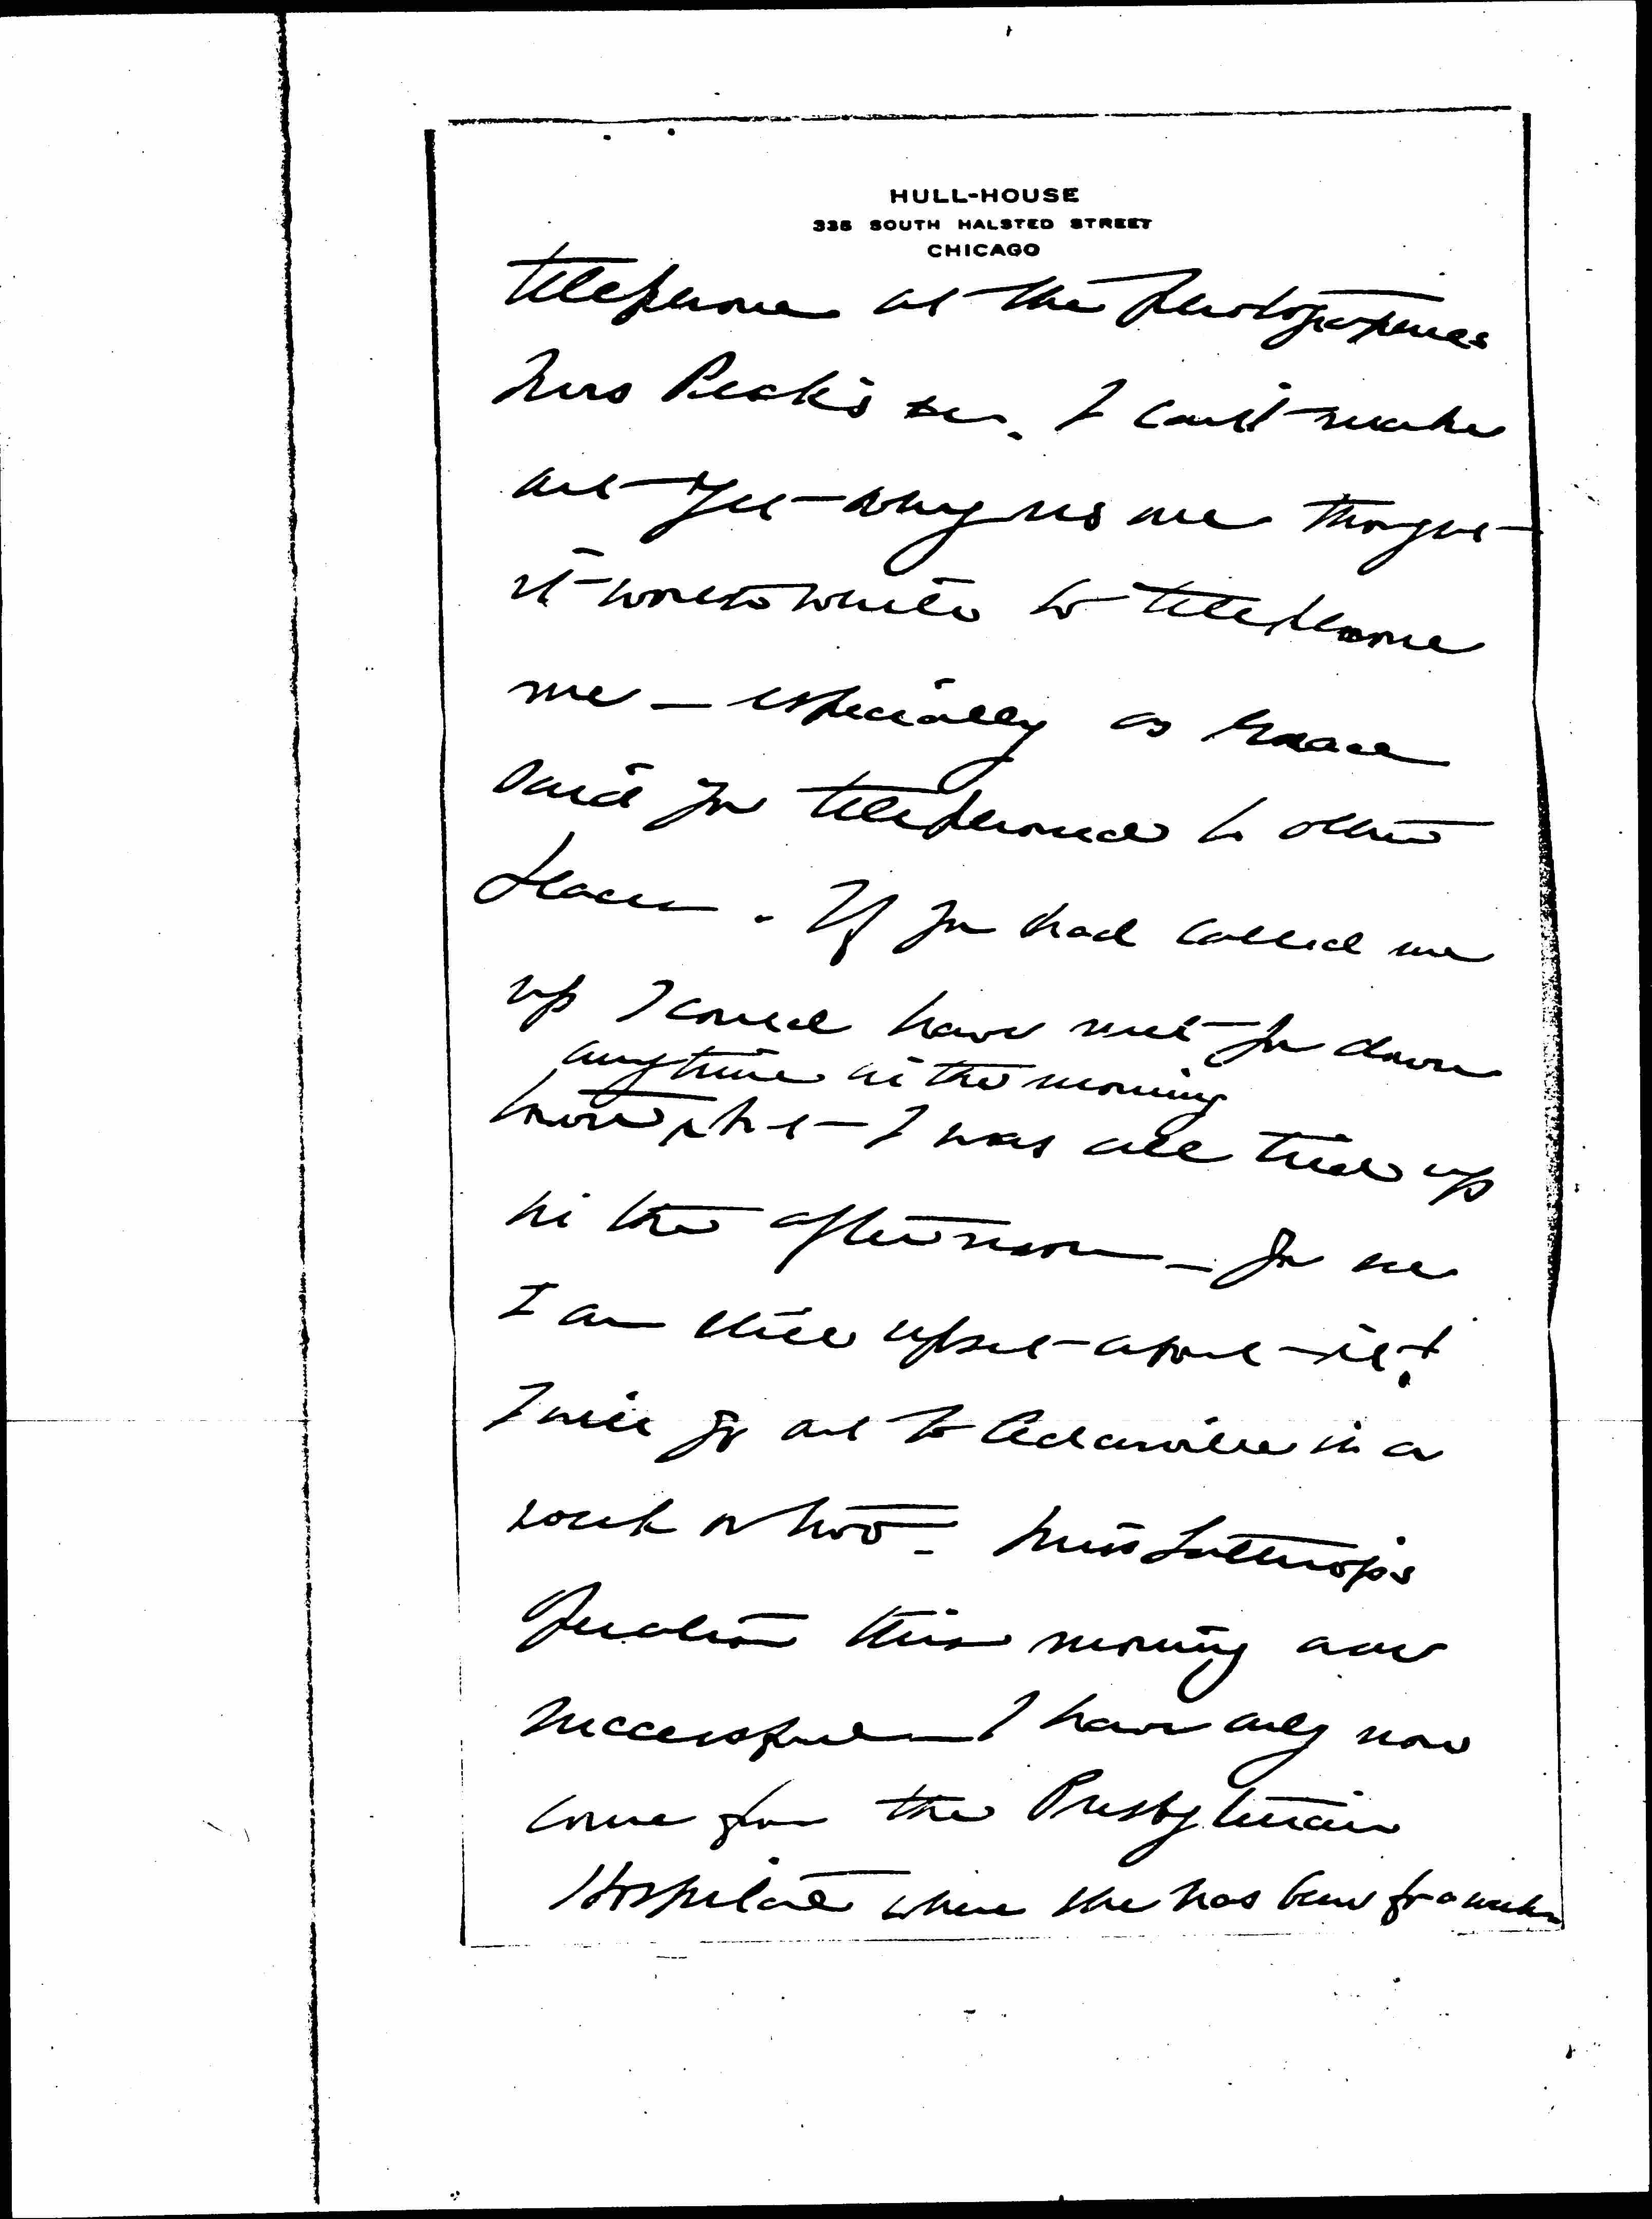 HULL-HOUSE
335 SOUTH HALSTED STREET
CHICAGO
telephone at the photographers
Mrs Peak's I can't make
out yet why no one thought
it worth while to telephone
me — especially as Grace
said you telephoned to other
places. If you had called me
up I could have met you down
anytime in the morning
town, but I was all tied up
in the afternoon — You see
I am still upset about it!
I will go out to Cedarville in a
week or two — Miss Lathrop's
operation this morning was
successful — I have only now
come from the Presbyterian
Hospital where she has been for a week